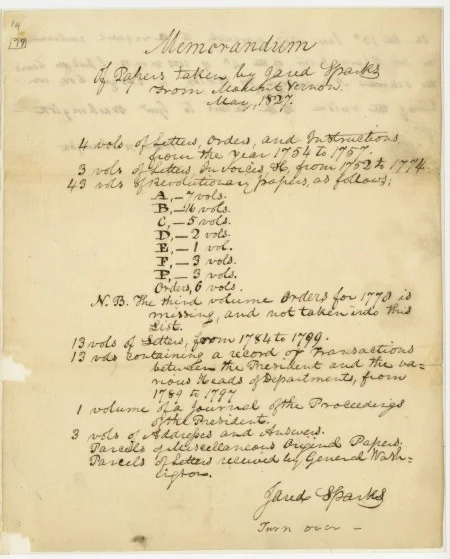 14
[79]
Memorandum
Of Papers taken by Jared Sparks
From Mount Vernon.
May, 1827.
4 vols of Letters, Orders, and Instructions,
from the Year 1754 to 1757.
3 vols of Letters, Invoices &c, from 1752 to 1774
43 vols of Revolutionary papers, as follows;
A,—7 vols.
B,—16 vols.
C,—5 vols.
D,—2 vols.
E,—1 vol.
F,—3 vols.
P,—3 vols.
Orders, 6 vols.
N.B. The third volume Orders for 1779 is
missing, and not taken into this
List.
13 vols of Letters, from 1784 to 1799.
13 vols containing a record of Transactions
between the President and the va-
rious Heads of Departments, from
1789 to 1797
1 volume of a Journal of the Proceedings
of the President.
3 vols of Addresses and Answers.
Parcels of Miscellaneous Original Papers.
Parcels of Letters received by General Wash-
ington.
Jared Sparks
Turn over —